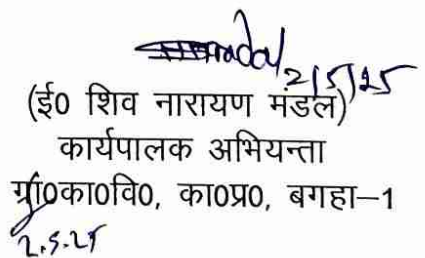 2/5/25
(ई0 शिव नारायण मंडल)
कार्यपालक अभियन्ता
ग्रा0का0वि0, का0प्र0, बगहा-1
2.5.25